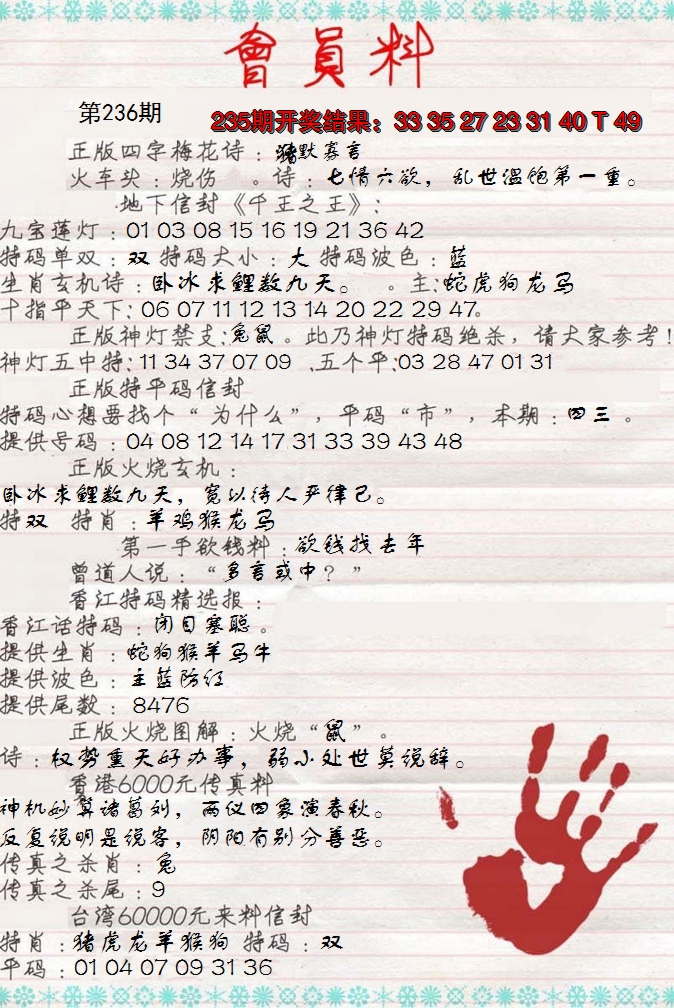 會員料
第236期
235期开奖结果：33 35 27 23 31 40 T 49
正版四字梅花诗：猪默寡言
火车头：烧伤 。诗：七情六欲，乱世温饱第一重。
.地下信封《千王之王》：
九宝莲灯：01 03 08 15 16 19 21 36 42
特码单双：双 特码大小：大 特码波色：蓝
生肖玄机诗：卧冰求鲤数九天。 。主：蛇虎狗龙马
十指平天下：06 07 11 12 13 14 20 22 29 47。
正版神灯禁支：兔鼠。此乃神灯特码绝杀，请大家参考！
神灯五中特：11 34 37 07 09 .五个平：03 28 47 01 31
正版特平码信封
特码心想要找个“为什么”，平码“市”，本期：四三。
提供号码：04 08 12 14 17 31 33 39 43 48
正版火烧玄机：
卧冰求鲤数九天，宽以待人严律己。
特双 特肖：羊鸡猴龙马
第一手欲钱料：欲钱找去年
曾道人说：“多言或中？”
香江特码精选报：
香江话特码：闭目塞聪。
提供生肖：蛇狗猴羊马牛
提供波色：主蓝防红
提供尾数：8476
正版火烧图解：火烧“鼠”。
诗：权势熏天好办事，弱小处世莫说辞。
香港6000元传真料
神机妙算诸葛刘，两仪四象演春秋。
反复说明是说客，阴阳有别分善恶。
传真之杀肖：兔
传真之杀尾：9
台湾60000元来料信封
特肖：猪虎龙羊猴狗 特码：双
平码：01 04 07 09 31 36